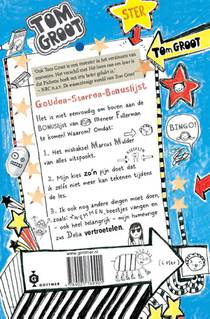 TOM
GROOT
STER
TOM GROOT
Ook Tom Groot is een meester in het verzinnen van
smoesjes. Het verschil met
NRC n.v. De waanzinnige wereld van Tom Groot
Gouden-Sterren-Bonuslijst
Het is niet eenvoudig om boven aan de
BONUSlijst van Meneer Fullerman
te komen! Waarom? Omdat:
1. Het miskoksel Marcus Mulder
van alles uitspookt.
2. Mijn kies zo'n pijn doet dat
ik zelfs niet meer kan tekenen tijdens
de les.
3. Ik ook nog andere dingen moet doen,
zoals: ZWEMMEN, beestjes vangen en
- ook heel belangrijk - mijn humeurige
zus Delia vertroetelen.
BINGO!
www.gottmer.nl
GOTTMER
(ster)